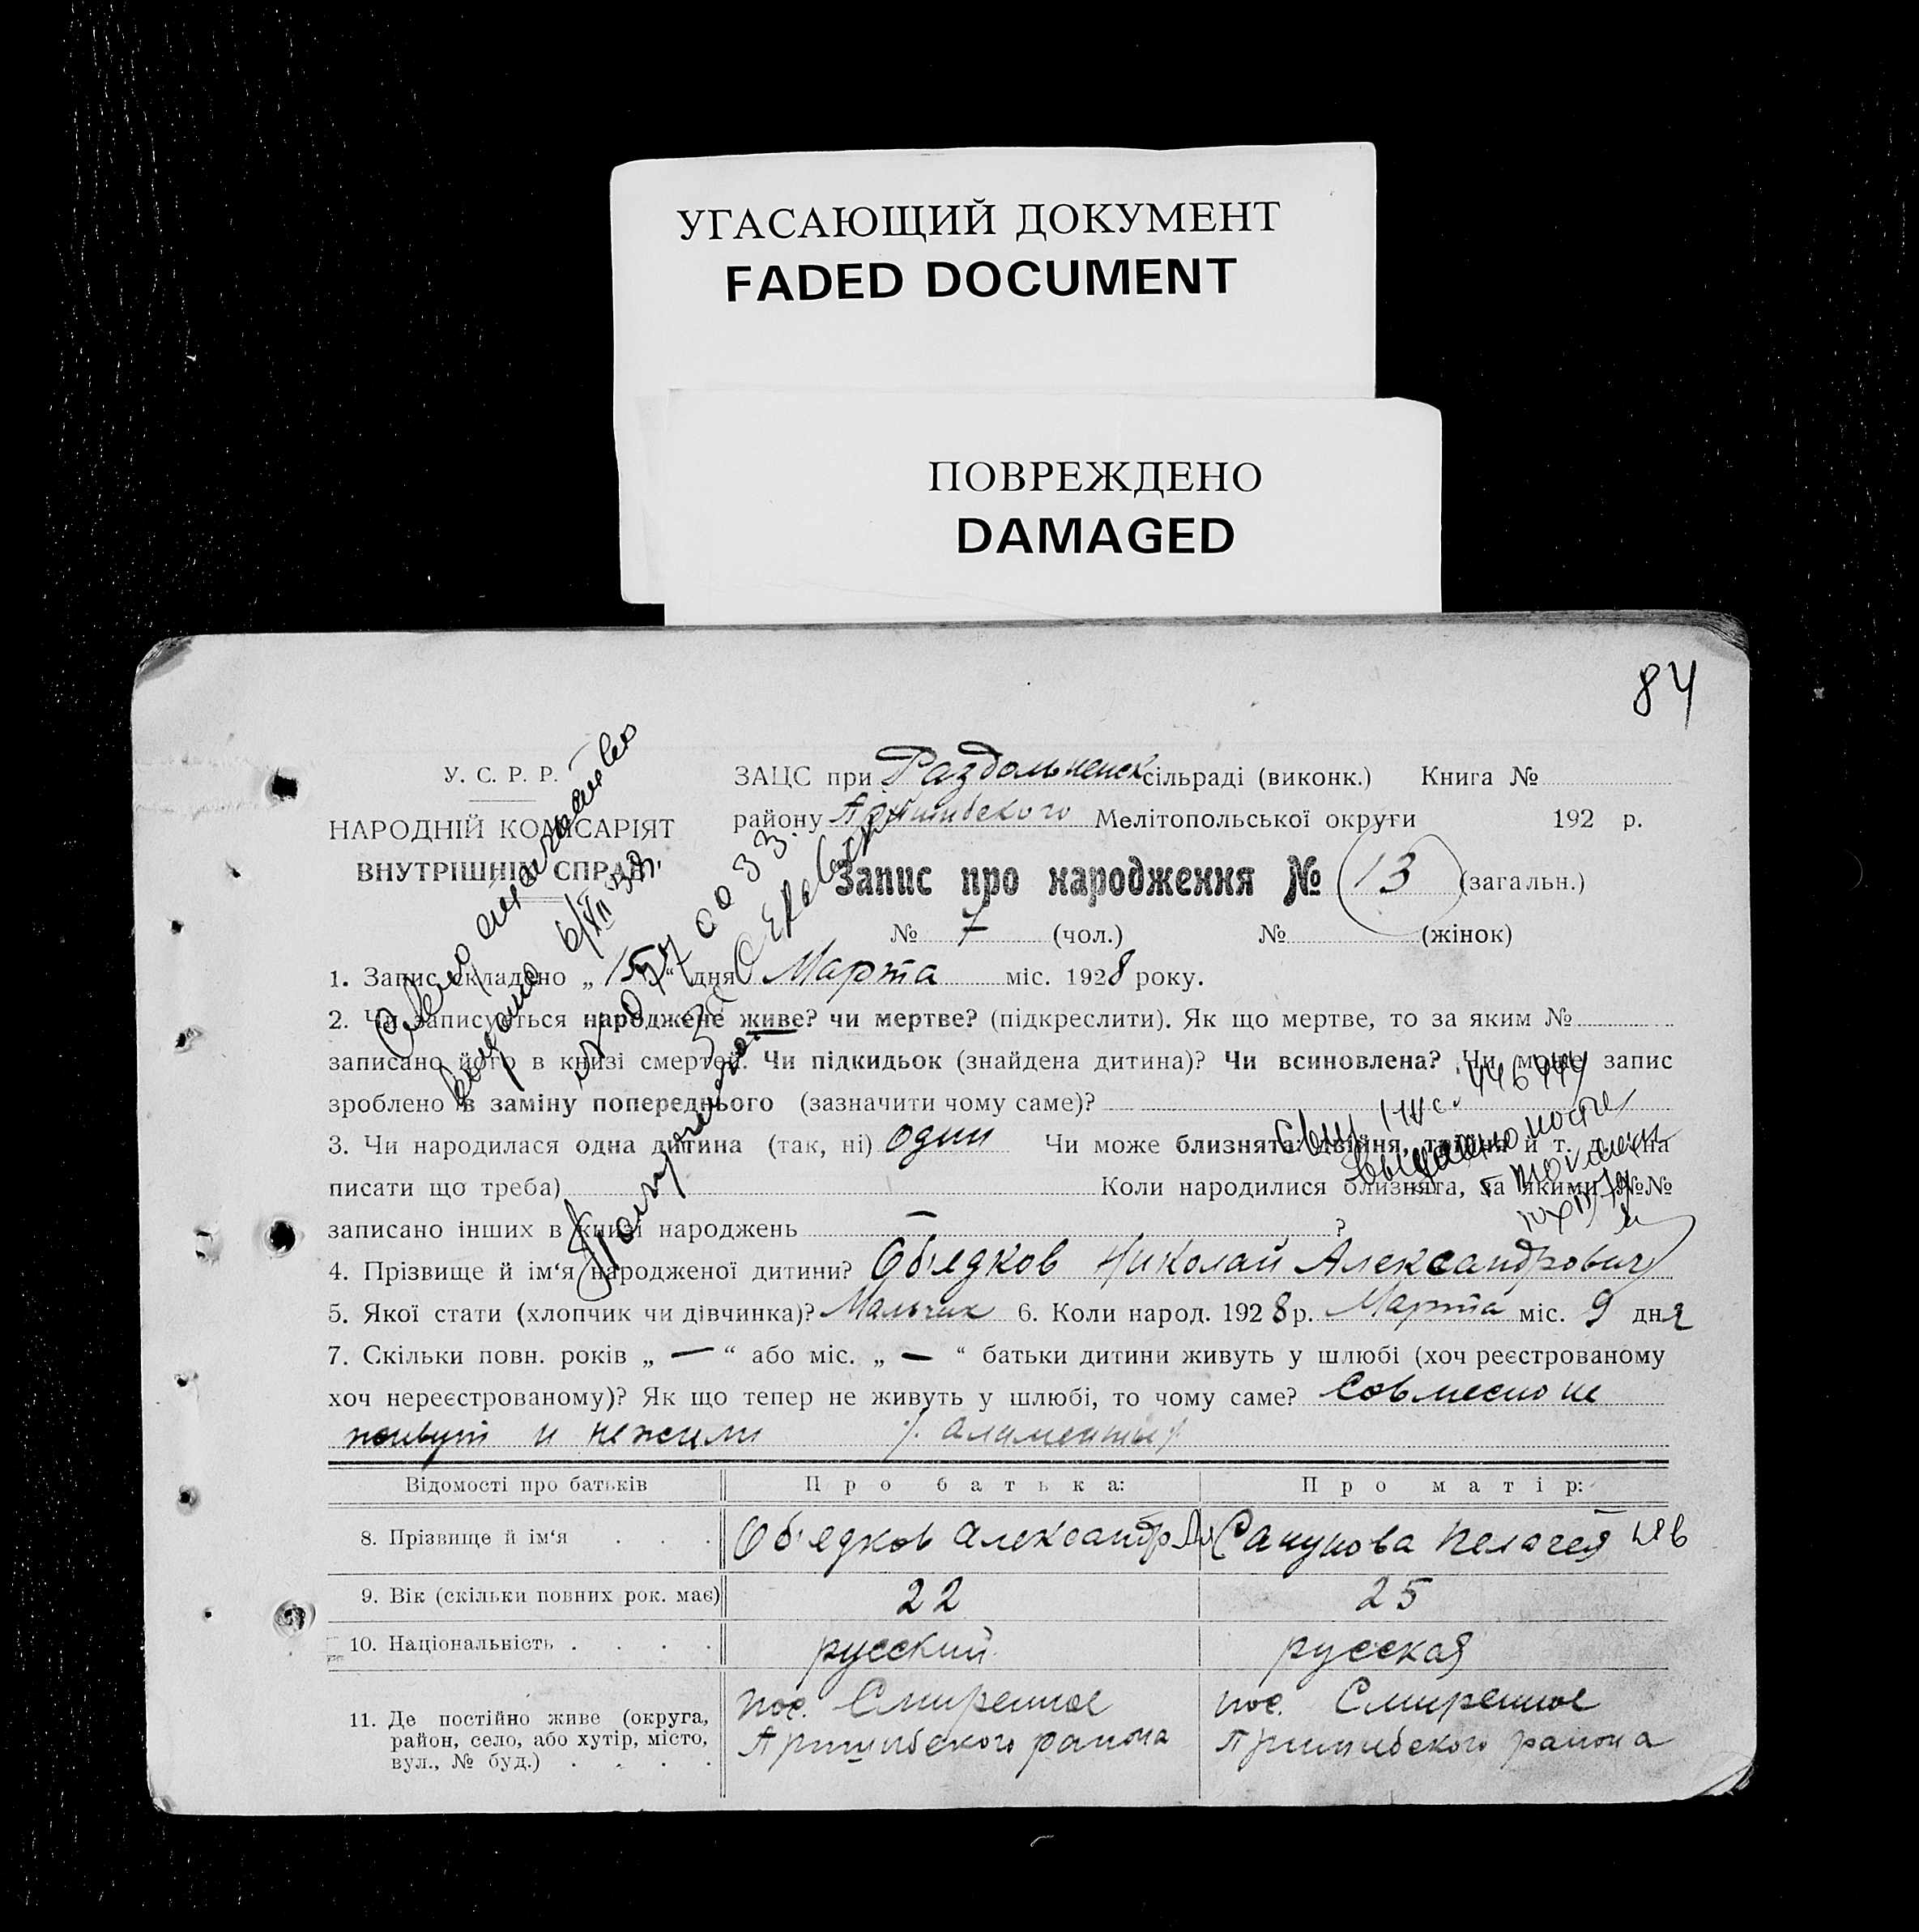 УГАСАЮЩИЙ ДОКУМЕНТ
FADED DOCUMENT
ПОВРЕЖДЕНО
DAMAGED
84
У. С. Р. Р.
НАРОДНІЙ КОМІСАРІЯТ
ВНУТРІШНІХ СПРАВ
ЗАЦС при Раздольненск сільраді (виконк.) Книга №
району Мелітопольської округи 192 р.
Запис про народження № 13 (загальн.)
№ 7 (чол.) № (жінок)
1. Запис складено „ 15 “ дня Марта міс. 1928 року.
2. Чи записується народжене живе? чи мертве? (підкреслити). Як що мертве, то за яким №
записано його в книзі смертей. Чи підкидьок (знайдена дитина)? Чи всиновлена? Чи може запис
зроблено в заміну попереднього (зазначити чому саме)?
3. Чи народилася одна дитина (так, ні) один Чи може близнята: двійня, трійня й т. д. (на
писати що треба) Коли народилися близнята, за якими №№
записано інших в книзі народжень — ?
4. Прізвище й ім‘я народженої дитини? Об'едков Николай Александрович
5. Якої стати (хлопчик чи дівчинка)? Мальчик 6. Коли народ. 1928 р. Марта міс. 9 дня
7. Скільки повн. років „ — “ або міс. „ — “ батьки дитини живуть у шлюбі (хоч реєстрованому
хоч нереєстрованому)? Як що тепер не живуть у шлюбі, то чому саме? Совмесно не
живут и нежили
Відомості про батьків Про батька: Про матір:
8. Прізвище й ім‘я . . . Об'едков Александр Пелагея
9. Вік (скільки повних рок. має) 22 25
10. Національність . . . . русский русская
11. Де постійно живе (округа, район, село, або хутір, місто, вул., № буд.) . . . .
пос. Смиренное пос. Смиренное
района района